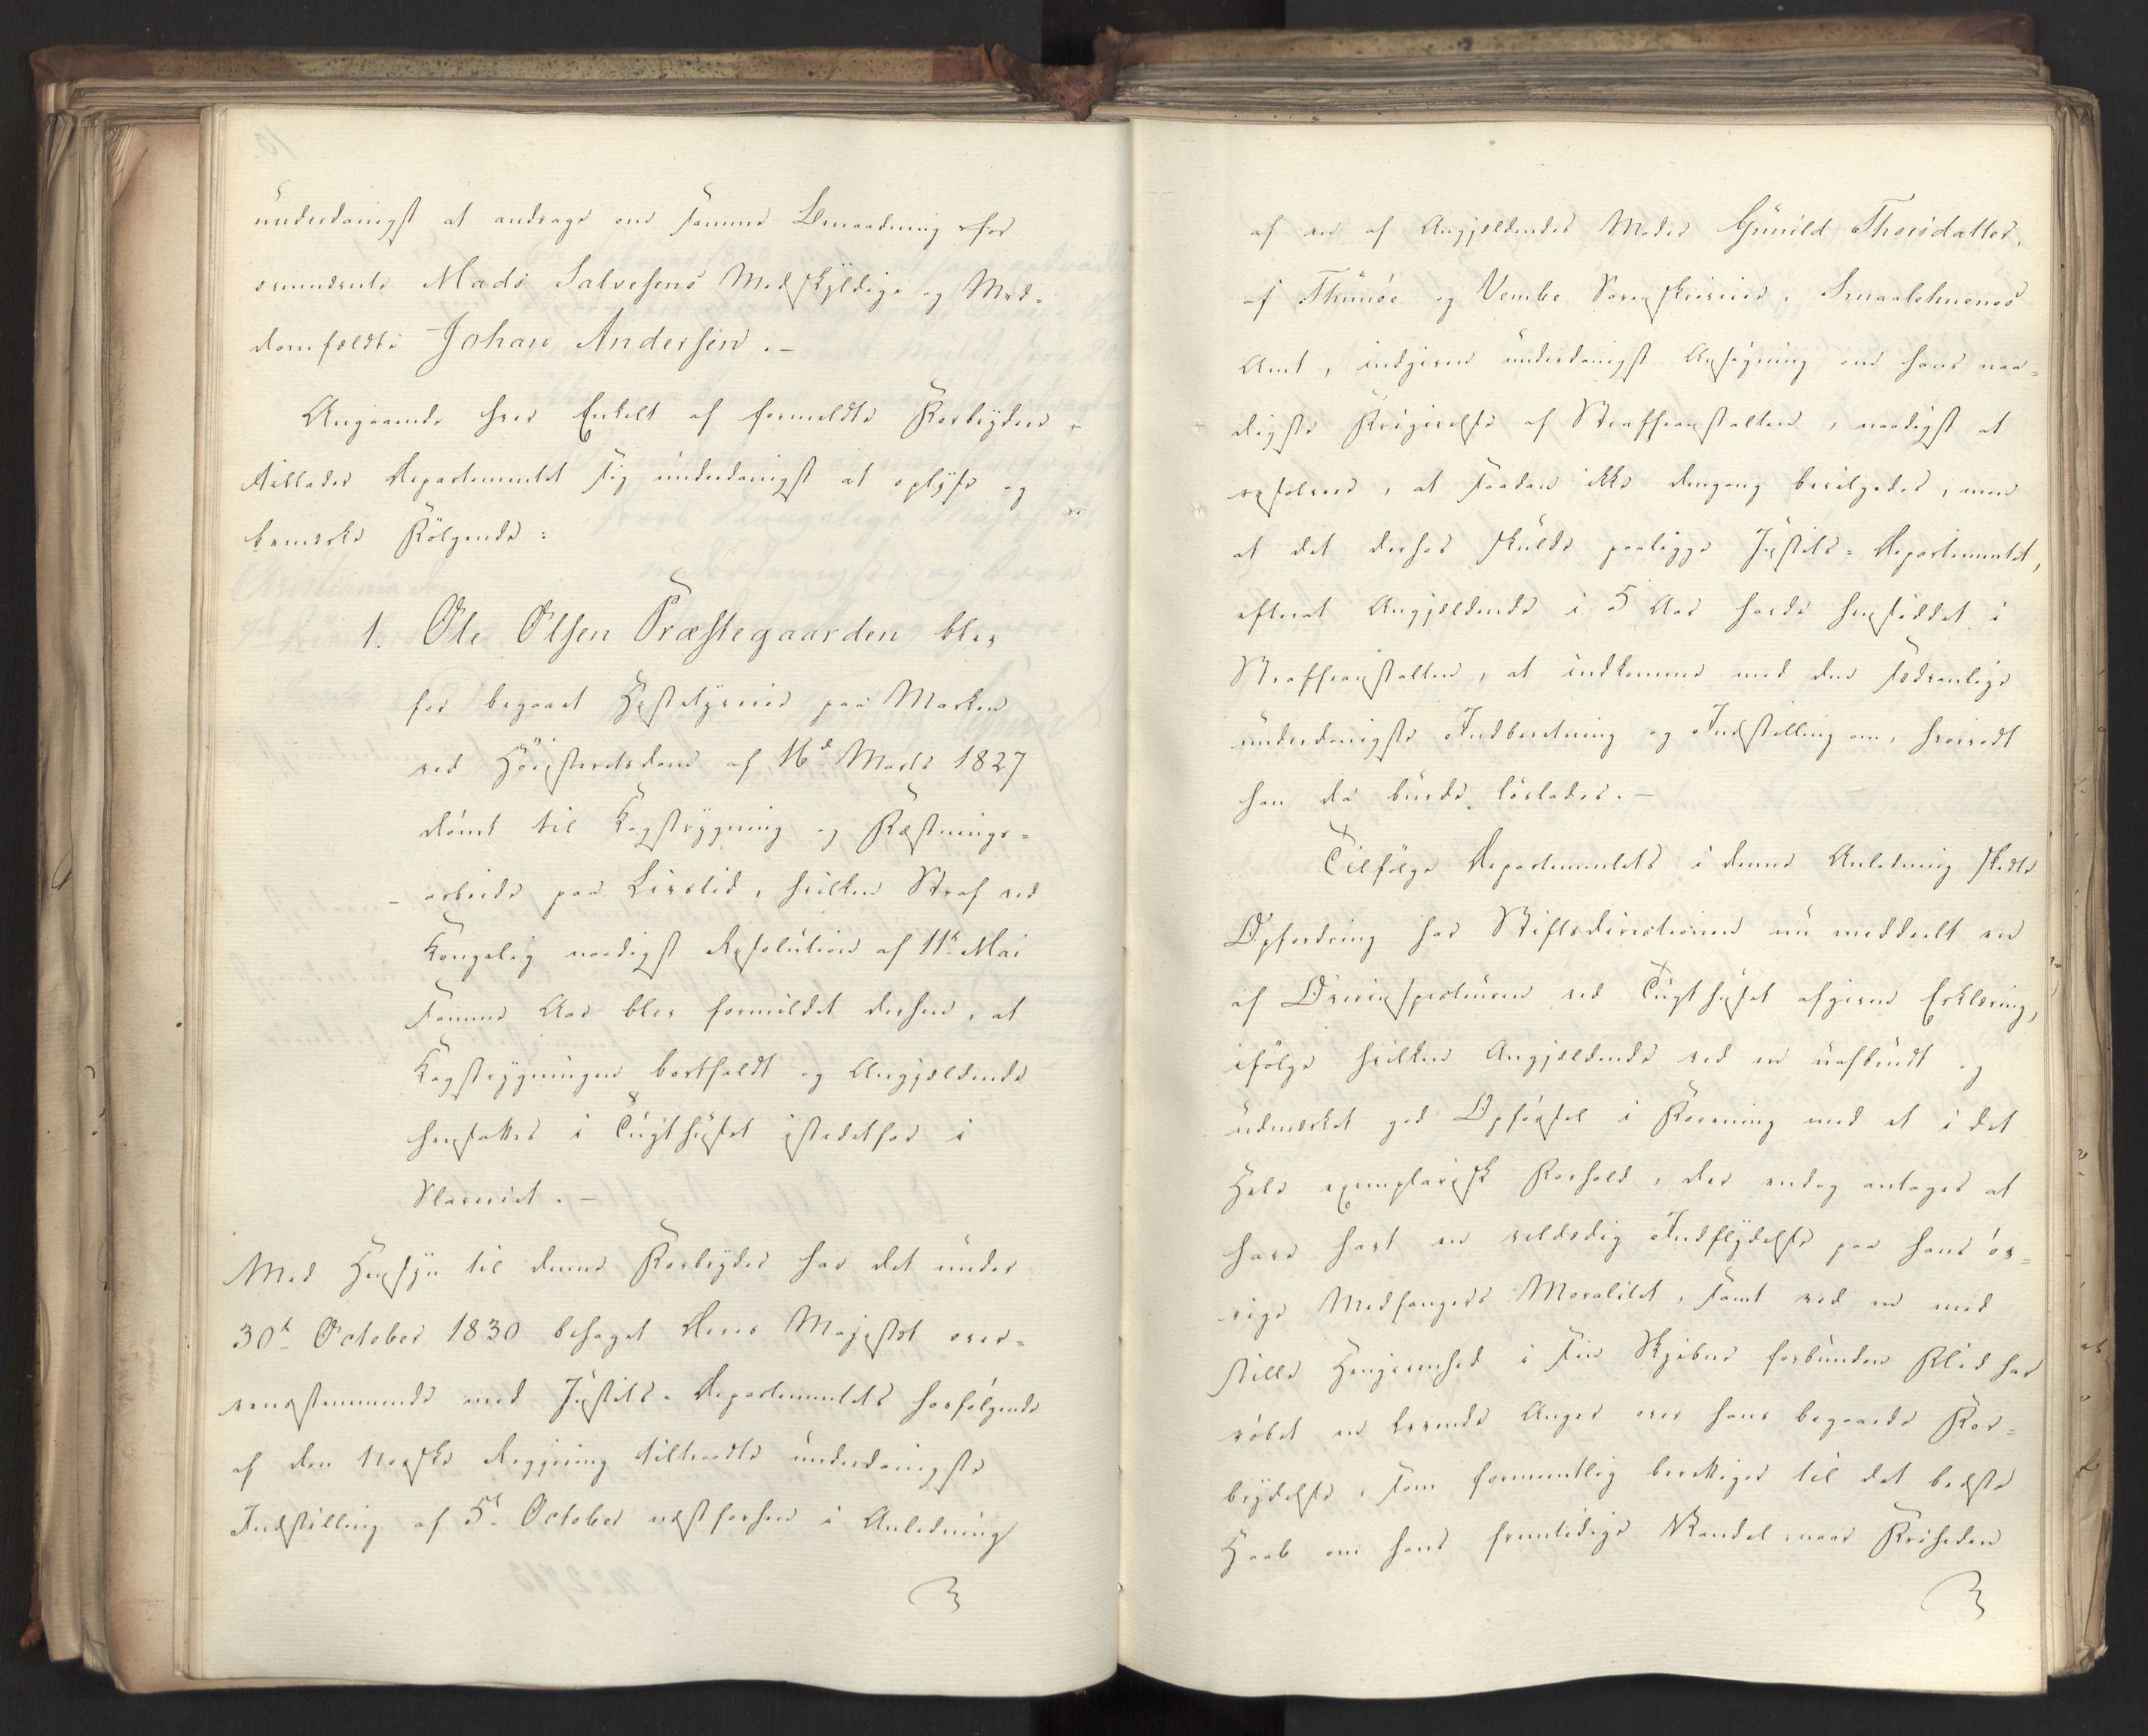 underdanigst at andrage om samme Benaadning for
benævnte Mads Salvesens Medskyldige og Med-
domfældte Johan Andersen. -
Angaaende hver Enkelt af formeldte Forbrydere
tillader Departementet sig underdanigst at oplyse og
bemærke Følgende:
1. Ole Olsen Præstegaarden blev
for begaaet Hestetyverie paa Marken
ved Höiesteretsdom af 16d Marts 1827
dömt til Kagstrygning og Fæstnings-
arbeide paa Livstid, hvilken Straf ved
Kongelig naadigst Resolution af 11te Mai
samme Aar blev formildet derhen, at
Kagstrygningen bortfaldt og Angjældende
hensattes i Tugthuset istedetfor i
Slaveriet. -
Med Hensyn til denne Forbryder har det under
30te October 1830 behaget Deres Majestæt over-
eensstemmende med Justits-Departementets hosfølgende
af den Norske Regjering tiltraadte underdanigste
Indstilling af 5te October næstforhen i Anledning
af en af Angjældendes Moder Gunild Thorsdatter,
af Thunöe og Vembe Sorenskriverie, Smaalehnenes
Amt, indgiven underdanigst Ansøgning om hans naa-
digste Frigivelse af Straffeanstalten, naadigst at
resolvere, at saadan ikke dengang bevilgedes, men
at det derhos skulde paaligge Justits-Departementet,
efterat Angjældende i 5 Aar havde hensiddet i
Straffeanstalten, at indkomme med den sædvanlige
underdanigste Indberetning og Indstilling om, hvorvidt
han da burde løslades. -
Tilfølge Departementets i denne Anledning skedte
Opfordring har Stiftsdirectionen nu meddeelt en
af Overinspecteuren ved Tugthuset afgiven Erklæring,
ifølge hvilken Angjældende ved en uafbrudt og
udmærket god Opførsel i Forening med et i det
Hele exemplarisk Forhold, der endog antages at
have havt en veldædig Indflydelse paa hans öv-
rige Medfangers Moralitet, samt ved en med
stille Hengivenhed i sin Skjebne forbunden Flid har
røbet en levende Anger over hans begaaede For-
brydelse, som formeentlig berettiger til det bedste
Haab om hans fremtidige Vandel, naar Friheden